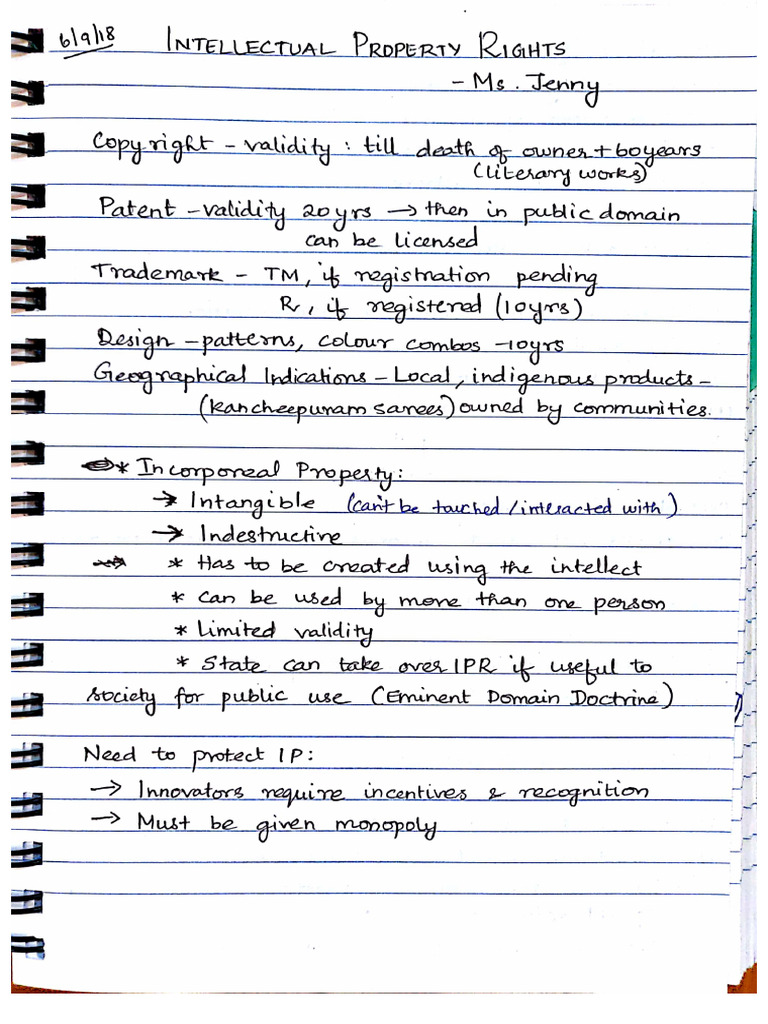 6/9/18 INTELLECTUAL PROPERTY RIGHTS
- Ms. Jenny
Copyright - validity : till death of owner + 60years
(literary works)
Patent - validity 20 yrs → then in public domain
can be licensed
Trademark - TM, if registration pending
R, if registered (10yrs)
Design - patterns, colour combos - 10yrs
Geographical Indications - Local, indigenous products -
(kancheepuram sarees) owned by communities.
* Incorporeal Property:
→ Intangible (can't be touched / interacted with)
→ Indestructive
* Has to be created using the intellect
* can be used by more than one person
* Limited validity
* State can take over IPR if useful to
society for public use (Eminent Domain Doctrine)
Need to protect IP:
→ Innovators require incentives & recognition
→ Must be given monopoly